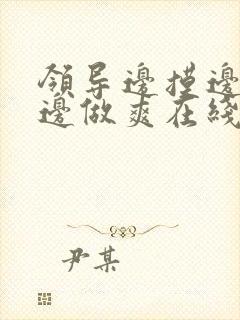 領导邊摸邊
邊做爽在綫
尹某